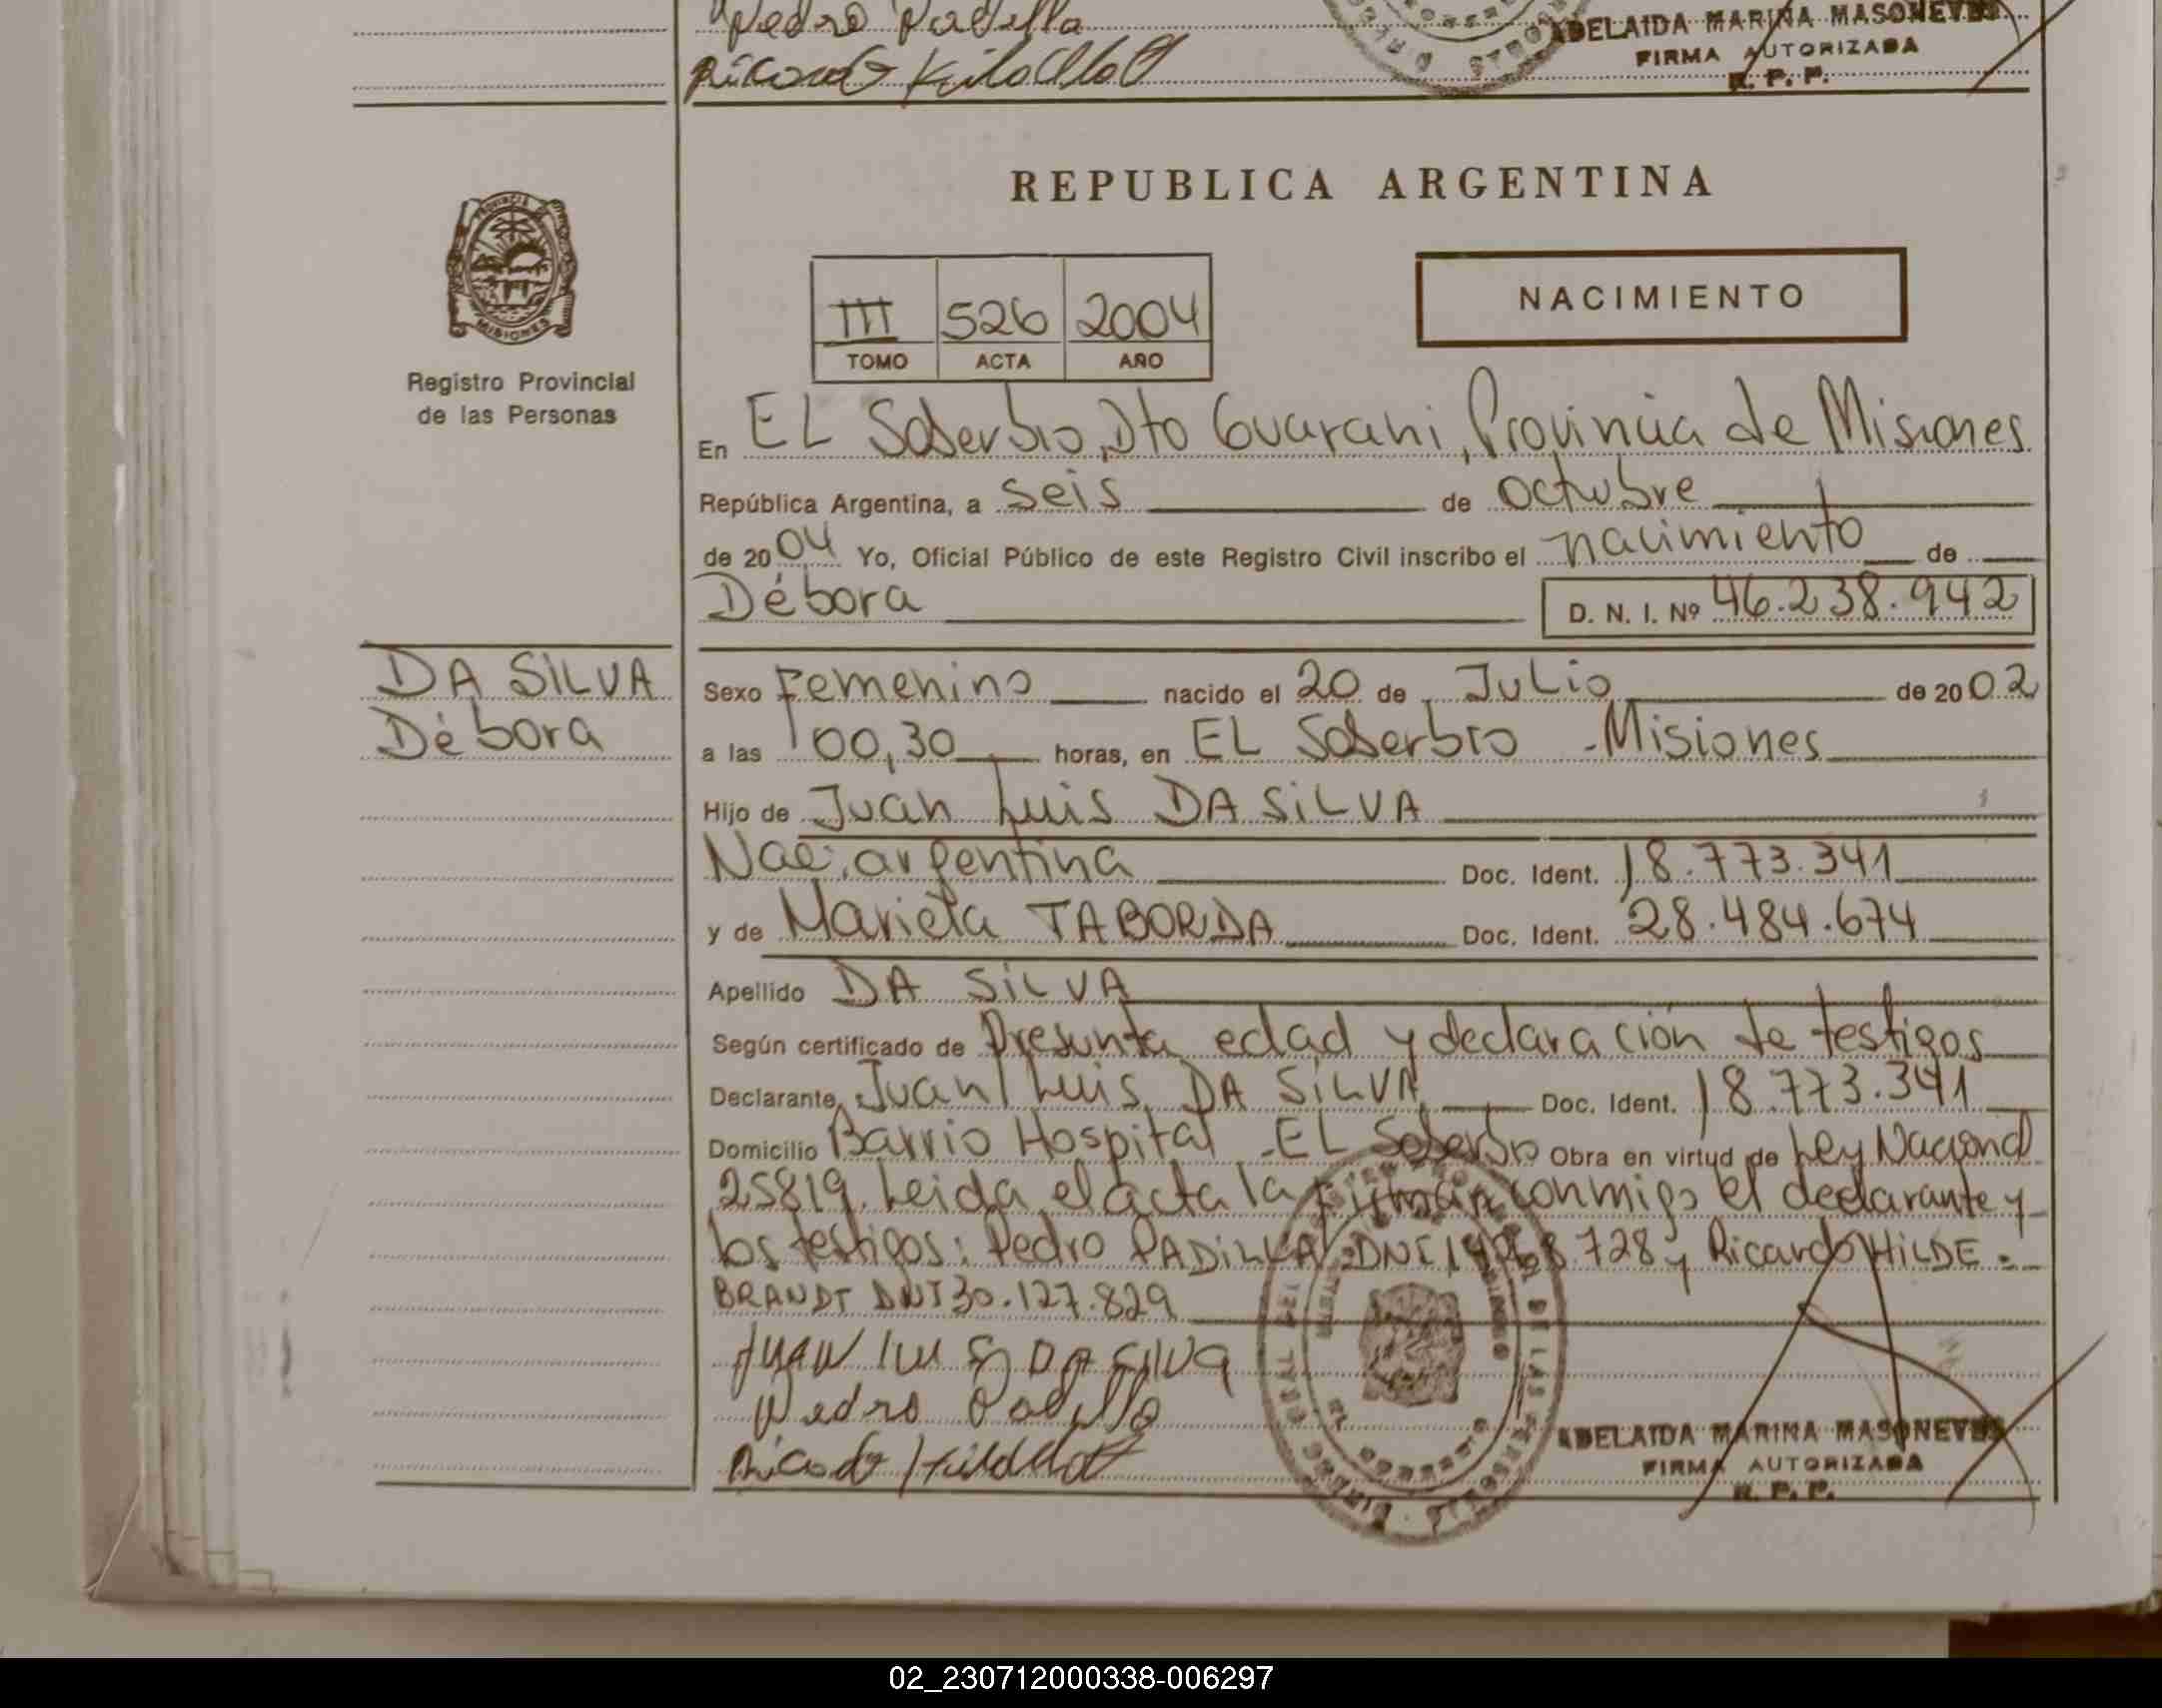 Pedro Padilla
ADELAIDA MARINA MASONEVES
FIRMA AUTORIZADA
R. P. P.
REPUBLICA ARGENTINA
PROVINCIA DE
MISIONES
Registro Provincial
de las Personas
III 526 2004
TOMO ACTA AÑO
NACIMIENTO
En EL Soberbio, Dto Guarani, Provincia de Misiones
República Argentina, a seis de octubre
de 2004 Yo, Oficial Público de este Registro Civil inscribo el nacimiento de
Débora D. N. I. Nº 46.238.942
DA SILVA
Débora
Sexo Femenino nacido el 20 de Julio de 2002
a las 00,30 horas, en EL Soberbio - Misiones
Hijo de Juan Luis DA SILVA
Nac. argentina Doc. Ident. 18.773.341
y de Marieta TABORDA Doc. Ident. 28.484.674
Apellido DA SILVA
Según certificado de Presunta edad y declaración de testigos
Declarante Juan Luis DA SILVA Doc. Ident. 18.773.341
Domicilio Barrio Hospital - EL Soberbio Obra en virtud de Ley Nacional
25819. Leida el acta la firman conmigo el declarante y
los testigos: Pedro PADILLA DNI 728 y Ricardo HILDE =
BRANDT DNI 30.127.829
JUAN LUIS DA SILVA
Pedro Padilla
ADELAIDA MARINA MASONEVES
FIRMA AUTORIZADA
R. P. P.
02_230712000338-006297